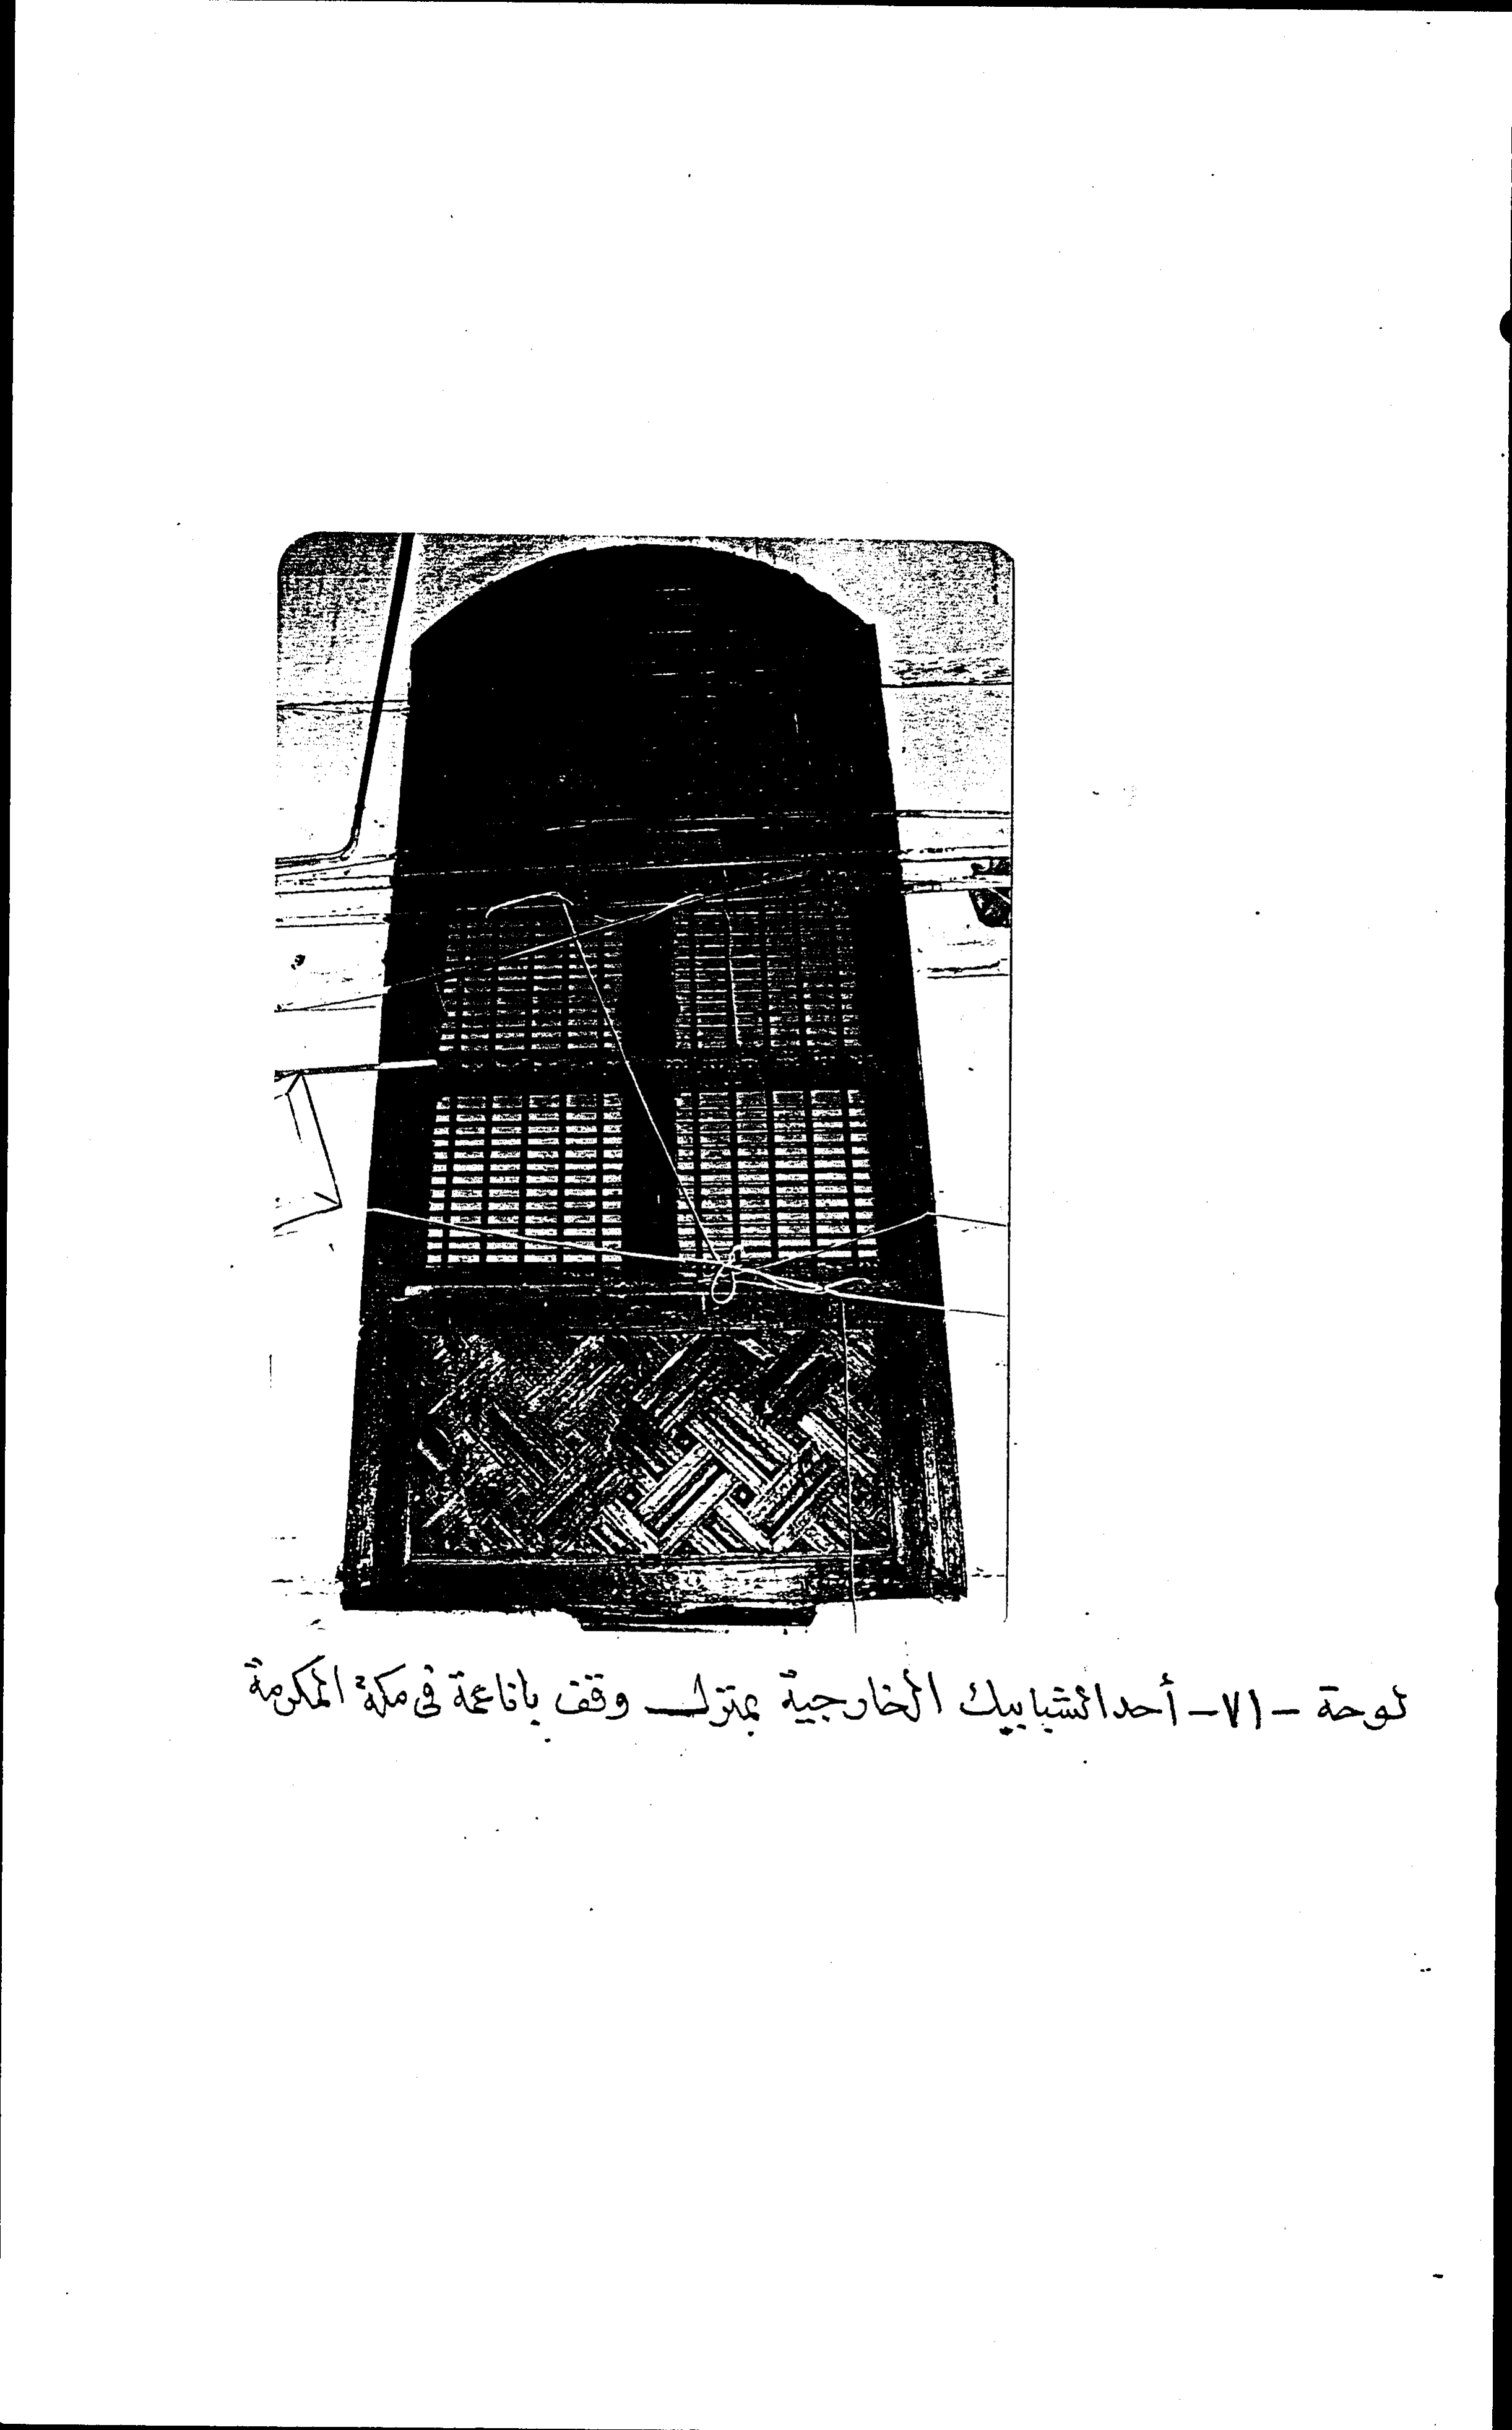 لوحة - ٧١ - أحد الشبابيك الخارجية بمنزل وقف باناعمة فى مكة المكرمة